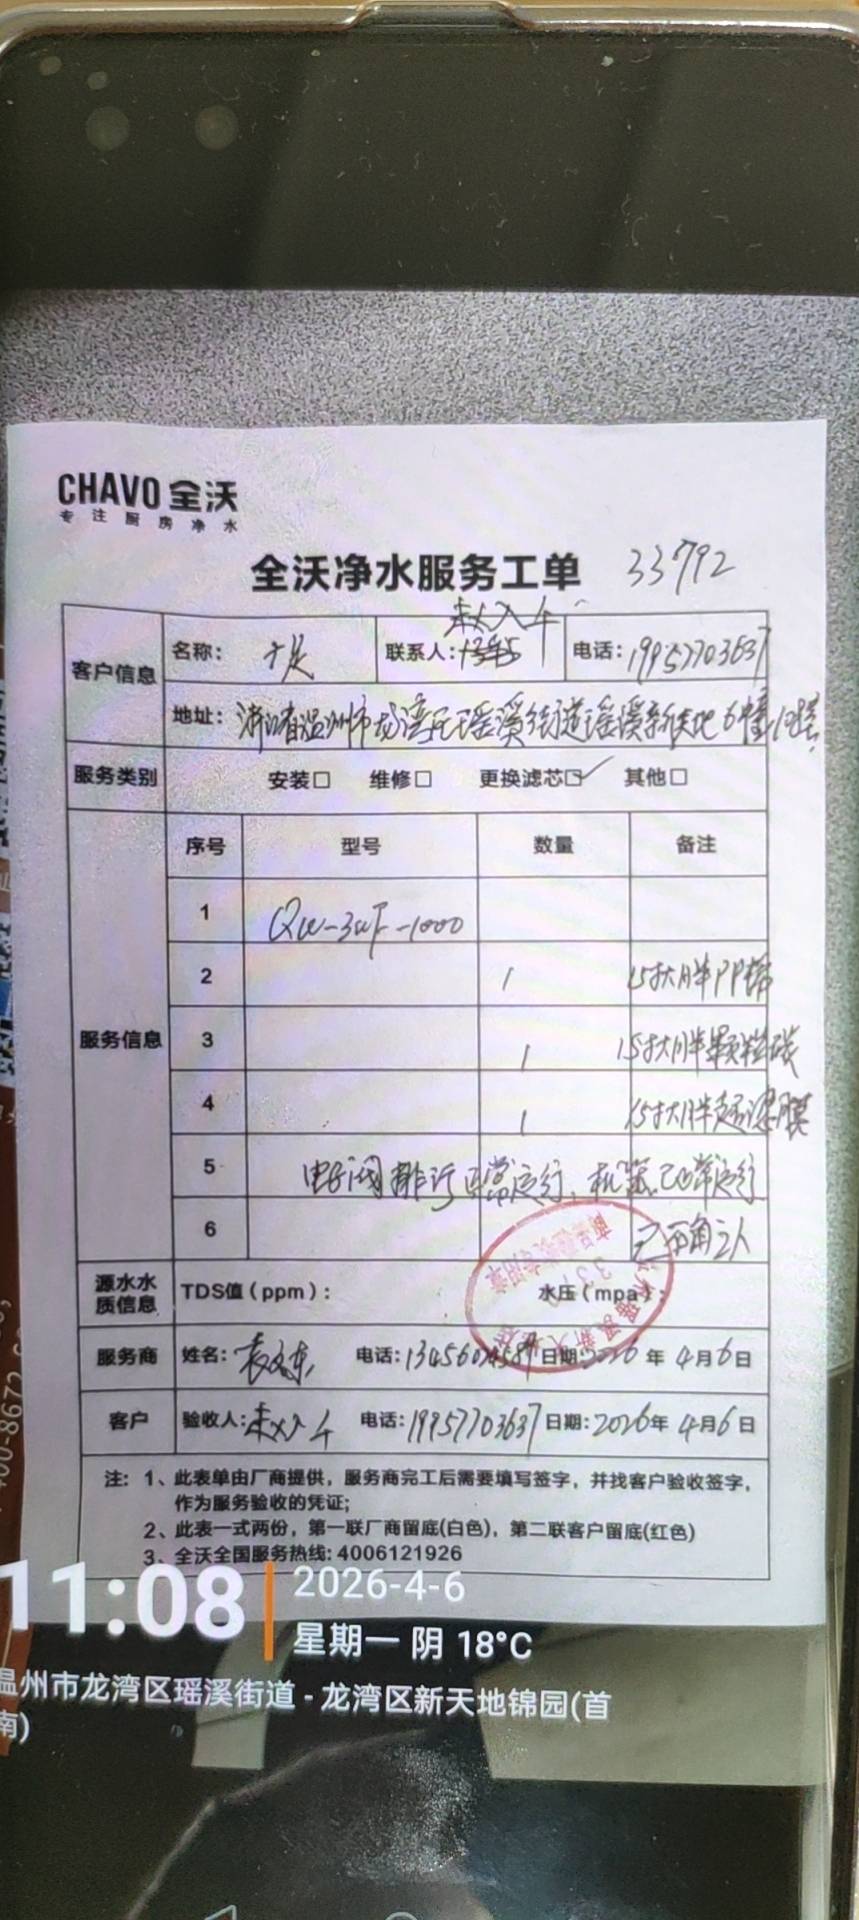 CHAVO 全沃
专注厨房净水
全沃净水服务工单 33792
客户信息 名称: 十足 联系人: 电话: 19957703637
地址: 浙江省温州市龙湾区瑶溪街道瑶溪新天地6幢
服务类别 安装□ 维修□ 更换滤芯☑ 其他□
服务信息 序号 型号 数量 备注
1 QW-3WF-1000
2 1 15寸大胖PP棉
3 1 15寸大胖颗粒碳
4 1 15寸大胖超滤膜
5 电子阀排污正常运行, 机器正常运行
6
源水水质信息 TDS值(ppm): 水压(mpa):
服务商 姓名: 电话: 日期: 2026年4月6日
客户 验收人: 电话: 19957703637 日期: 2026年4月6日
注: 1、此表单由厂商提供，服务商完工后需要填写签字，并找客户验收签字，
作为服务验收的凭证;
2、此表一式两份，第一联厂商留底(白色)，第二联客户留底(红色)
3、全沃全国服务热线: 4006121926
11:08 2026-4-6
星期一 阴 18°C
温州市龙湾区瑶溪街道 - 龙湾区新天地锦园(首
南)